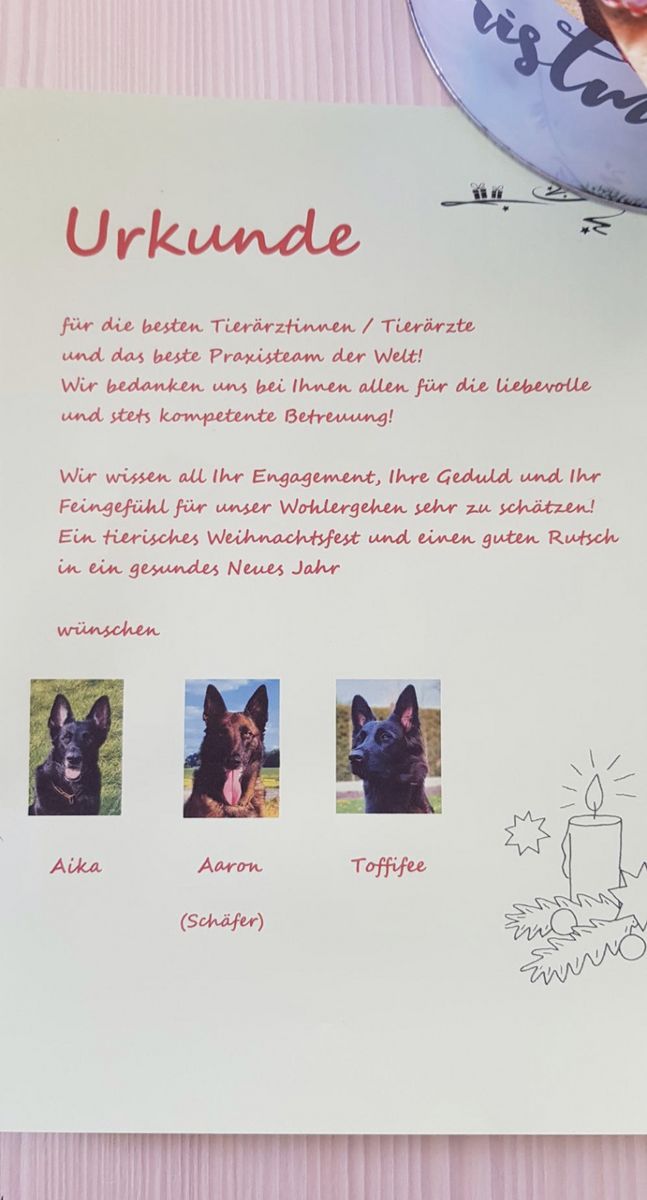 Urkunde
für die besten Tierärztinnen / Tierärzte
und das beste Praxisteam der Welt!
Wir bedanken uns bei Ihnen allen für die liebevolle
und stets kompetente Betreuung!
Wir wissen all Ihr Engagement, Ihre Geduld und Ihr
Feingefühl für unser Wohlergehen sehr zu schätzen!
Ein tierisches Weihnachtsfest und einen guten Rutsch
in ein gesundes Neues Jahr
wünschen
Aika Aaron Toffifee
(Schäfer)